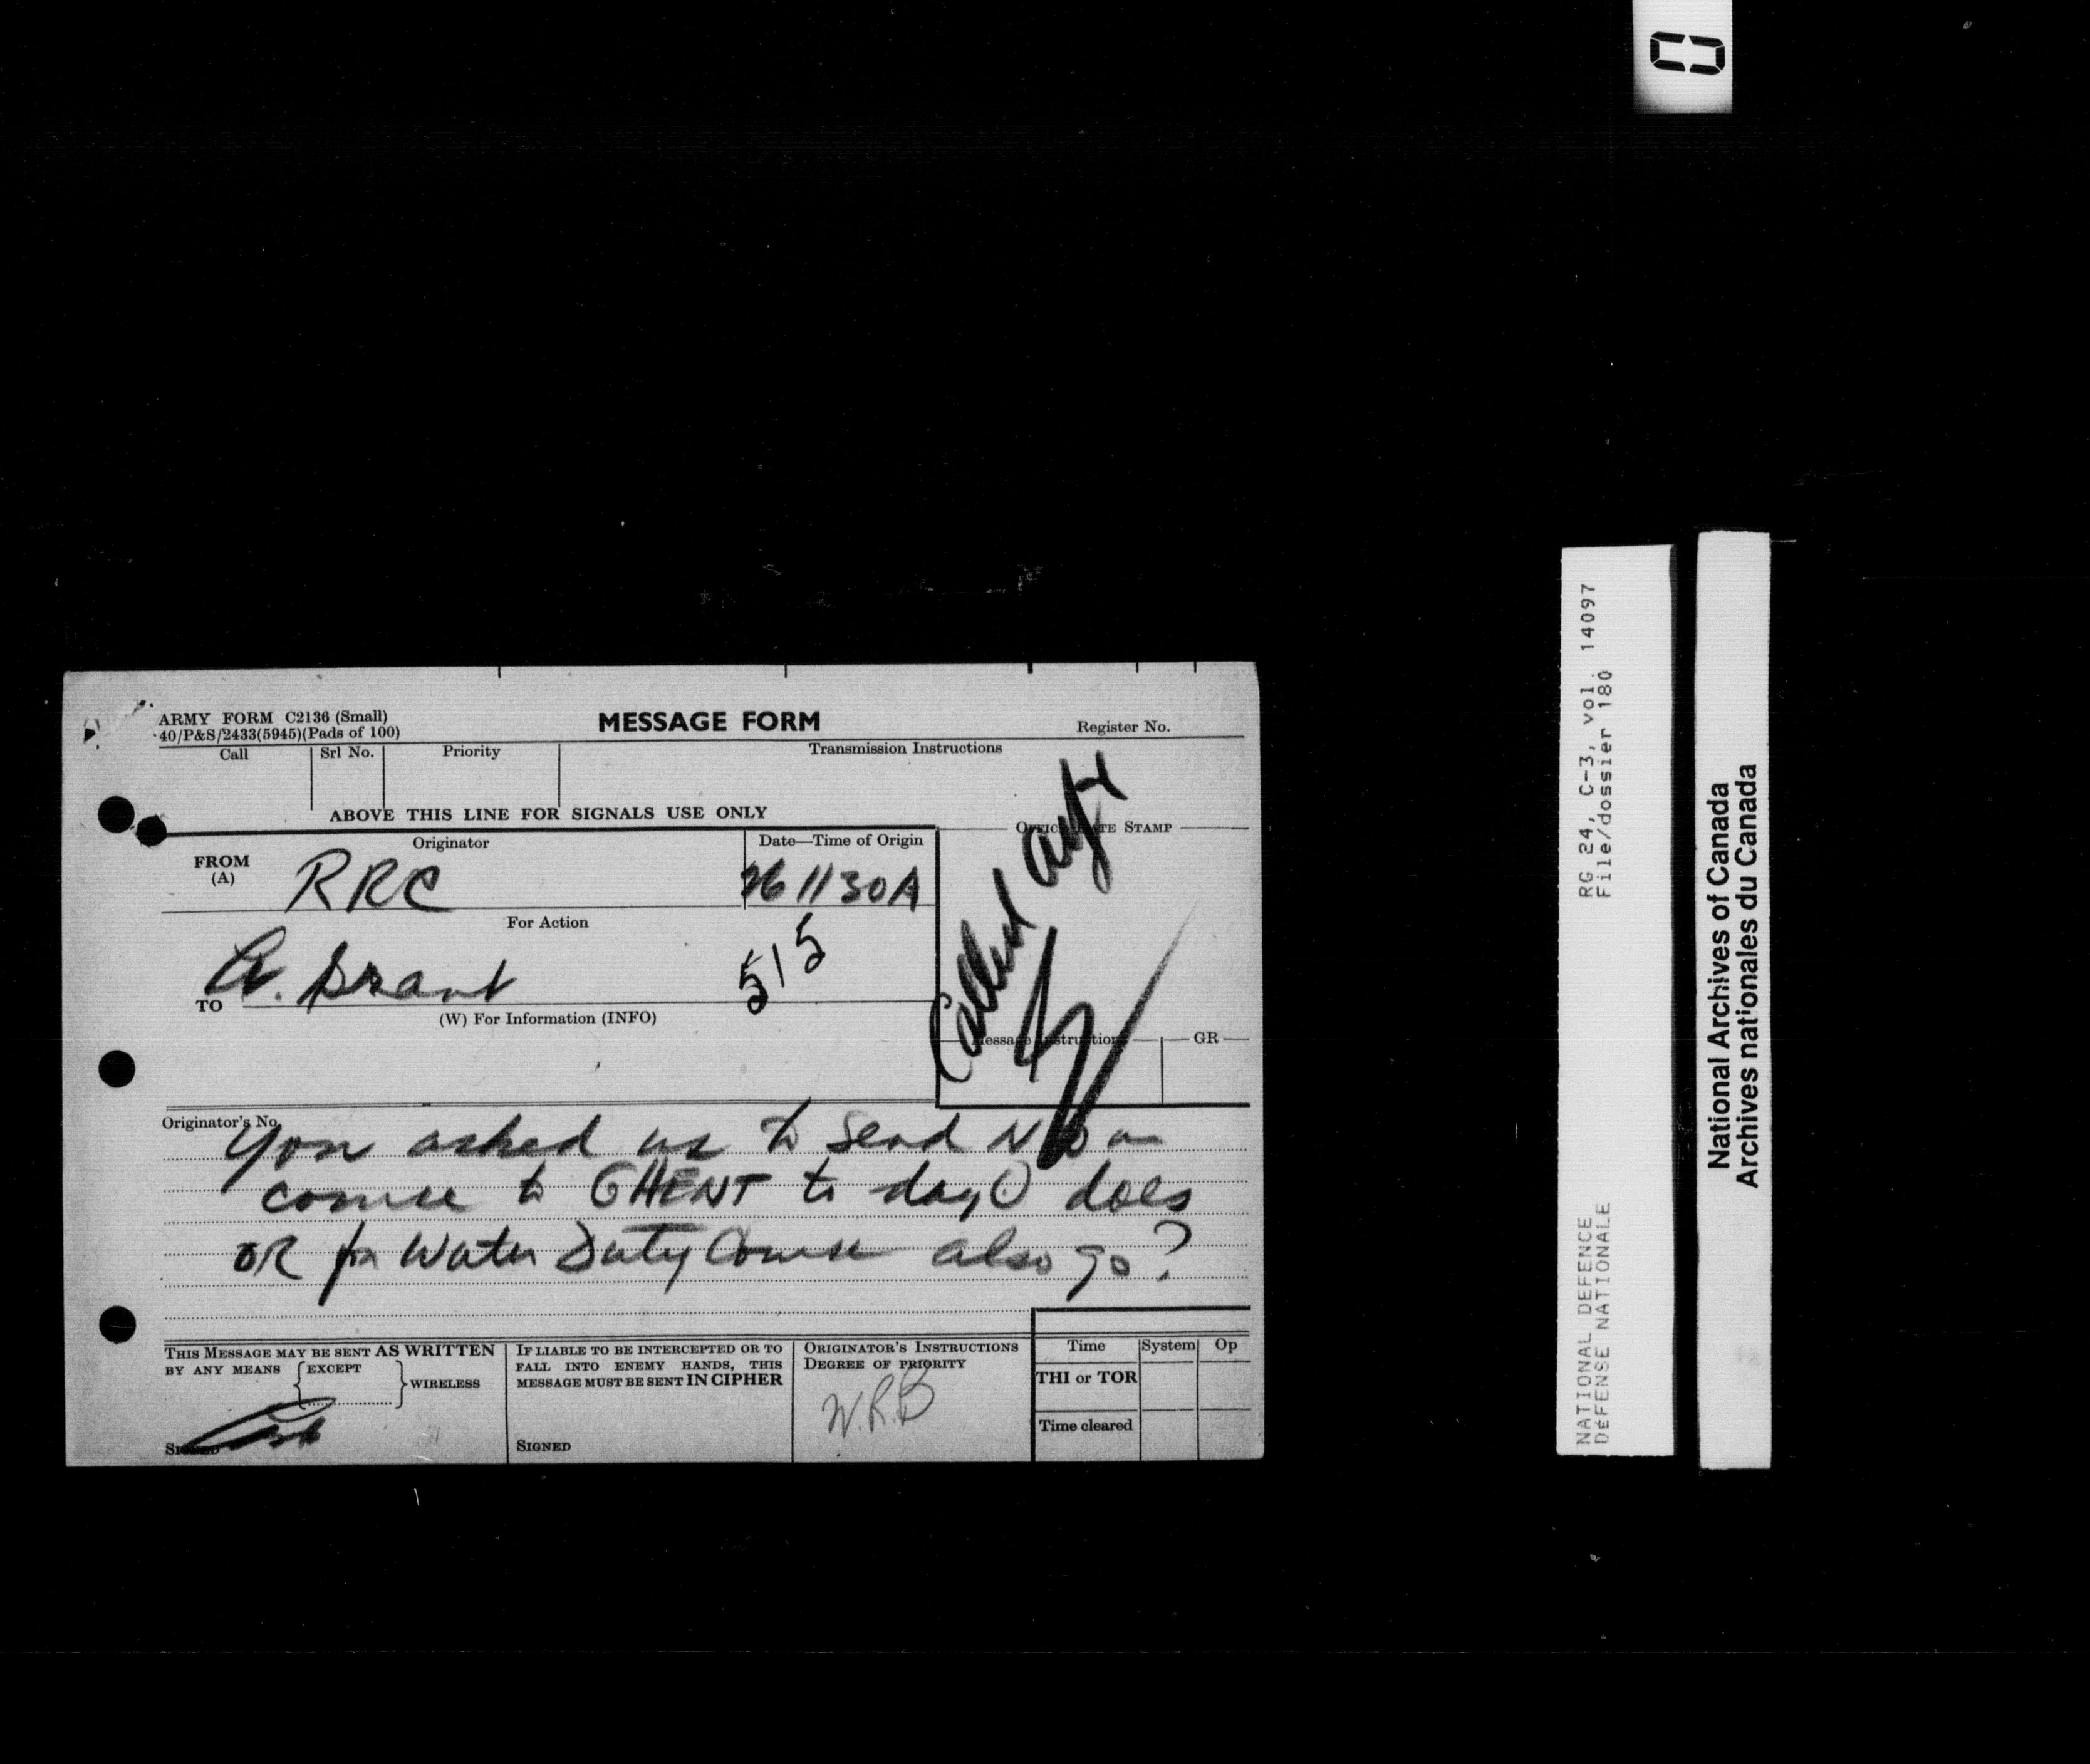 ARMY FORM C2136 (Small)
40/P&S/2433(5945)(Pads of 100)
MESSAGE FORM
Register No.
Call Srl No. Priority Transmission Instructions
ABOVE THIS LINE FOR SIGNALS USE ONLY
Originator Date—Time of Origin
FROM
(A)
RRC 261130A
For Action
TO
A. Brant 515
(W) For Information (INFO)
STAMP
Called
Message Instructions GR
Originator's No.
You asked us to send N on
course to GHENT to day O does
OR for Water Duty Course also go?
THIS MESSAGE MAY BE SENT AS WRITTEN
BY ANY MEANS EXCEPT
WIRELESS
SIGNED
IF LIABLE TO BE INTERCEPTED OR TO
FALL INTO ENEMY HANDS, THIS
MESSAGE MUST BE SENT IN CIPHER
SIGNED
ORIGINATOR'S INSTRUCTIONS
DEGREE OF PRIORITY
W.R.B
Time System Op
THI or TOR
Time cleared
RG 24, C-3, vol. 14097
File/dossier 180
NATIONAL DEFENCE
DÉFENSE NATIONALE
National Archives of Canada
Archives nationales du Canada